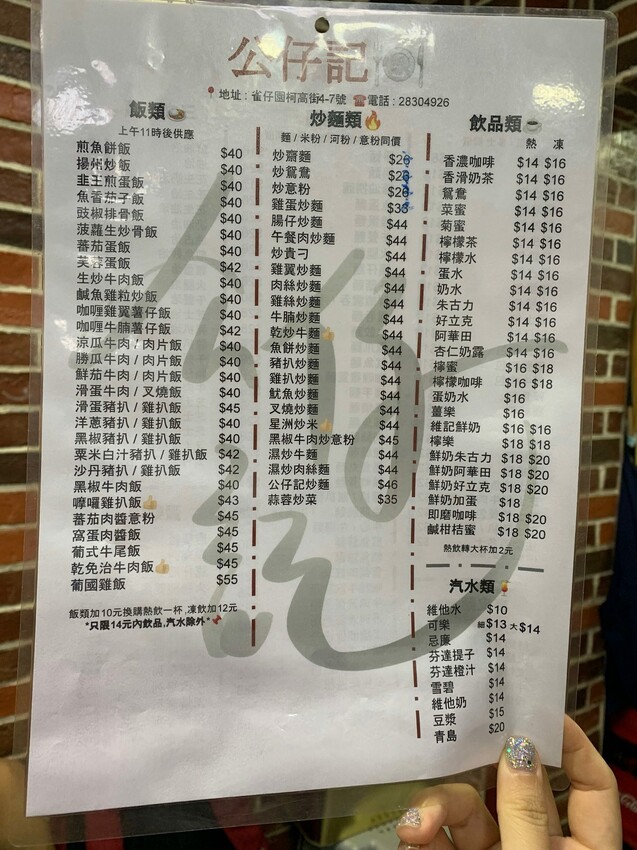 公仔記
地址 : 雀仔園柯高街4-7號 ☎電話 : 28304926
飯類
上午11時後供應
煎魚餅飯 $40
揚州炒飯 $40
韭王煎蛋飯 $40
魚香茄子飯 $40
豉椒排骨飯 $40
菠蘿生炒骨飯 $40
蕃茄蛋飯 $40
芙蓉蛋飯 $42
生炒牛肉飯 $40
鹹魚雞粒炒飯 $40
咖喱雞翼薯仔飯 $40
咖喱牛腩薯仔飯 $42
涼瓜牛肉 / 肉片飯 $40
勝瓜牛肉 / 肉片飯 $40
鮮茄牛肉 / 肉片飯 $40
滑蛋牛肉 / 叉燒飯 $40
滑蛋豬扒 / 雞扒飯 $45
洋蔥豬扒 / 雞扒飯 $40
黑椒豬扒 / 雞扒飯 $40
粟米白汁豬扒 / 雞扒飯 $42
沙丹豬扒 / 雞扒飯 $42
黑椒牛肉飯 $40
嚤囉雞扒飯👍 $43
蕃茄肉醬意粉 $45
窩蛋肉醬飯 $45
葡式牛尾飯 $45
乾免治牛肉飯👍 $45
葡國雞飯 $55
飯類加10元換購熱飲一杯 ,凍飲加12元
*只限14元內飲品,汽水除外*
炒麵類🔥
麵 / 米粉 / 河粉 / 意粉同價
炒齋麵
炒鴛鴦
炒意粉
雞蛋炒麵
腸仔炒麵 $44
午餐肉炒麵 $44
炒貴刁 $44
雞翼炒麵 $44
肉絲炒麵 $44
雞絲炒麵 $44
牛腩炒麵 $44
乾炒牛麵👍 $44
魚餅炒麵 $44
豬扒炒麵 $44
雞扒炒麵 $44
魷魚炒麵 $44
叉燒炒麵 $44
星洲炒米👍 $44
黑椒牛肉炒意粉 $45
濕炒牛麵 $44
濕炒肉絲麵 $44
公仔記炒麵 $46
蒜蓉炒菜 $35
飲品類☕
熱 凍
香濃咖啡 $14 $16
香滑奶茶 $14 $16
鴛鴦 $14 $16
菜蜜 $14 $16
菊蜜 $14 $16
檸檬茶 $14 $16
檸檬水 $14 $16
蛋水 $14 $16
奶水 $14 $16
朱古力 $14 $16
好立克 $14 $16
阿華田 $14 $16
杏仁奶露 $14 $16
檸蜜 $16 $18
檸檬咖啡 $16 $18
蛋奶水 $16
薑樂 $16
維記鮮奶 $16 $16
檸樂 $18 $18
鮮奶朱古力 $18 $20
鮮奶阿華田 $18 $20
鮮奶好立克 $18 $20
鮮奶加蛋 $18
即磨咖啡 $18 $20
鹹柑桔蜜 $18 $20
熱飲轉大杯加2元
汽水類
維他水 $10
可樂 細$13 大$14
忌廉 $14
芬達提子 $14
芬達橙汁 $14
雪碧 $14
維他奶 $14
豆漿 $15
青島 $20